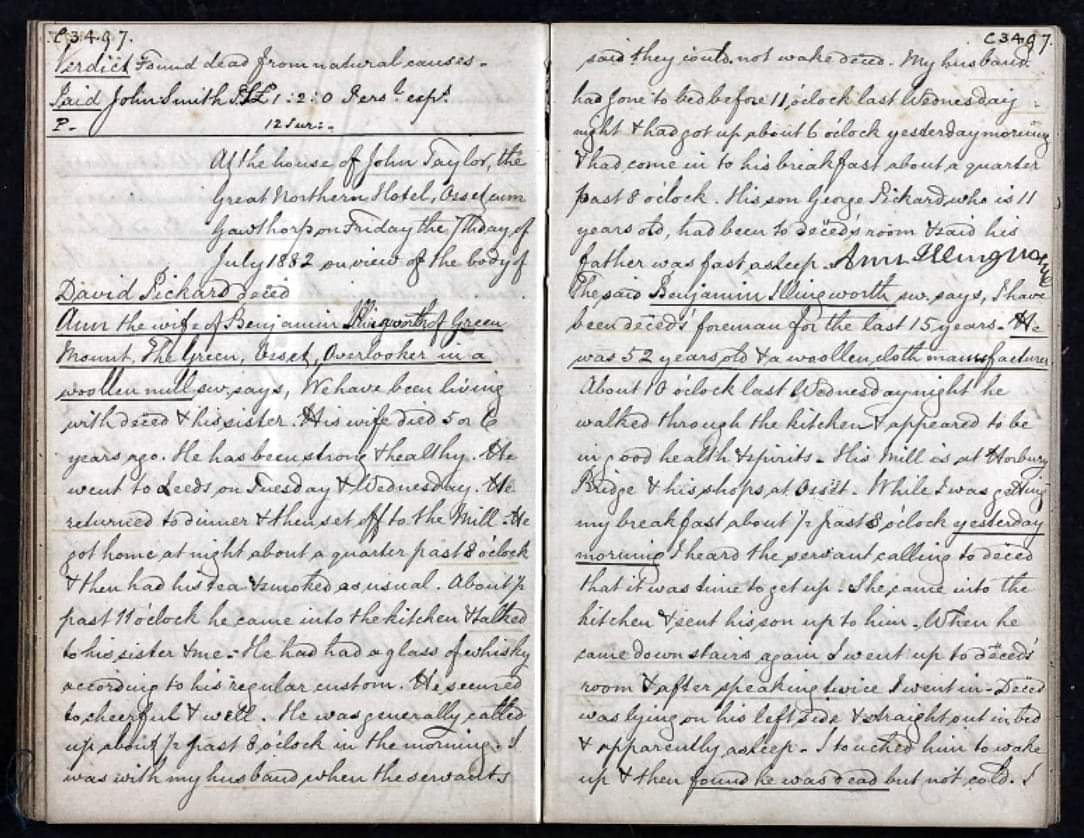 C 3497.
Verdict Found dead from natural causes -
Paid John Smith P.S. £1:2:0 Pers.l exp.s
P- 12 Jur:-
At the house of John Taylor, the
Great Northern Hotel, Osset cum
Gawthorp on Friday the 7th day of
July 1882 on view of the body of
David Pickard deced
Ann the wife of Benjamin Illingworth of Green
Mount, The Green, Osset, Overlooker in a
woollen mill sw. says, We have been living
with deced & his sister. His wife died 5 or 6
years ago. He has been strong & healthy. He
went to Leeds on Tuesday & Wednesday. He
returned to dinner & then set off to the Mill - He
got home at night about a quarter past 8 o'clock
& then had his tea & smoked as usual. About ½
past 11 o'clock he came into the kitchen & talked
to his sister & me - He had had a glass of whisky
according to his regular custom. He seemed
to cheerful & well. He was generally called
up about ½ past 8 o'clock in the morning. I
was with my husband when the servants
C 3497.
said they could not wake deced. My husband
had gone to bed before 11 o'clock last Wednesday
night & had got up about 6 o'clock yesterday morning
& had come in to his breakfast about a quarter
past 8 o'clock. His son George Pickard, who is 11
years old, had been to deced's room & said his
father was fast asleep - Ann Illingworth
The said Benjamin Illingworth sw. says, I have
been deced's foreman for the last 15 years - He
was 52 years old & a woollen cloth manufacturer
About 10 o'clock last Wednesday night he
walked through the kitchen & appeared to be
in good health & spirits - His Mill is at Horbury
Bridge & his shops at Osset - While I was getting
my breakfast about ½ past 8 o'clock yesterday
morning I heard the servant calling to deced
that it was time to get up. She came into the
kitchen & sent his son up to him - When he
came down stairs again I went up to deced's
room & after speaking twice I went in - Deced
was lying on his left side & straight out in bed
& apparently asleep - I touched him to wake
up & then found he was dead but not cold. I